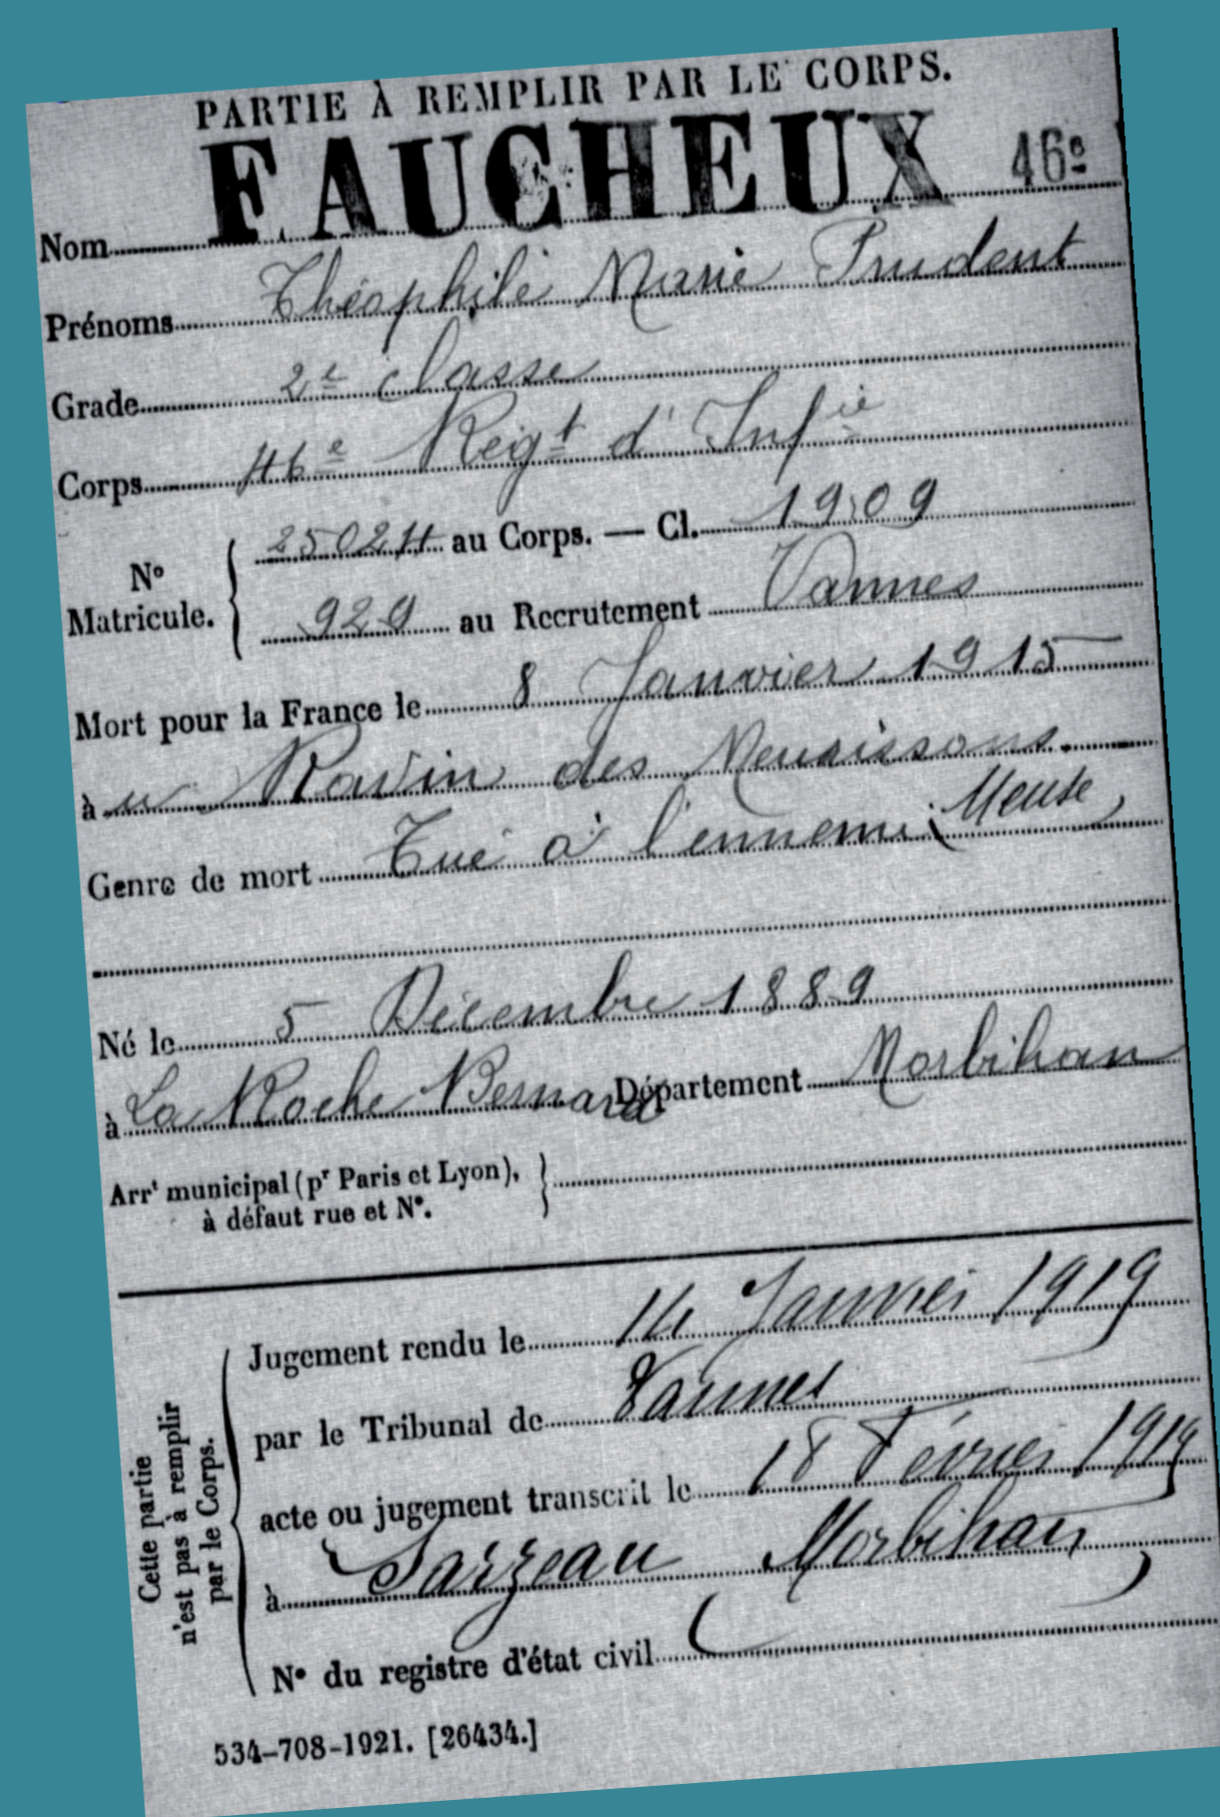 PARTIE À REMPLIR PAR LE CORPS.
Nom FAUCHEUX 46e
Prénoms Théophile Marie Prudent
Grade 2e classe
Corps 46e Régt d'Infie
No Matricule. { 25024 au Corps. — Cl. 1909
929 au Recrutement Vannes
Mort pour la France le 8 Janvier 1915
à u Ravin des Meurissons
(Meuse)
Genre de mort Tué à l'ennemi
Né le 5 Décembre 1889
à La Roche Bernard Département Morbihan
Arrt municipal (pr Paris et Lyon), }
à défaut rue et No.
Cette partie
n'est pas à remplir
par le Corps.
Jugement rendu le 14 Janvier 1919
par le Tribunal de Vannes
acte ou jugement transcrit le 18 Février 1919
à Sarzeau (Morbihan)
No du registre d'état civil
534-708-1921. [26434.]